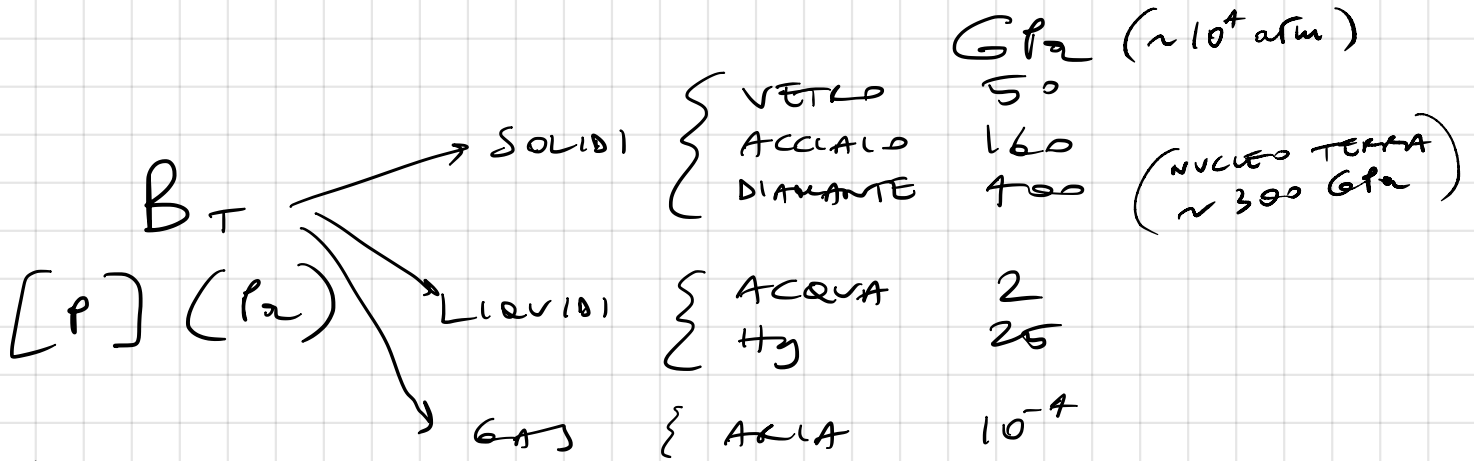 GPa (~10⁴ atm)
VETRO 50
SOLIDI { ACCIAIO 160
DIAMANTE 400 (NUCLEO TERRA ~ 300 GPa)
B_T
[P] (Pa)
LIQUIDI { ACQUA 2
Hg 25
GAS { ARIA 10⁻⁴